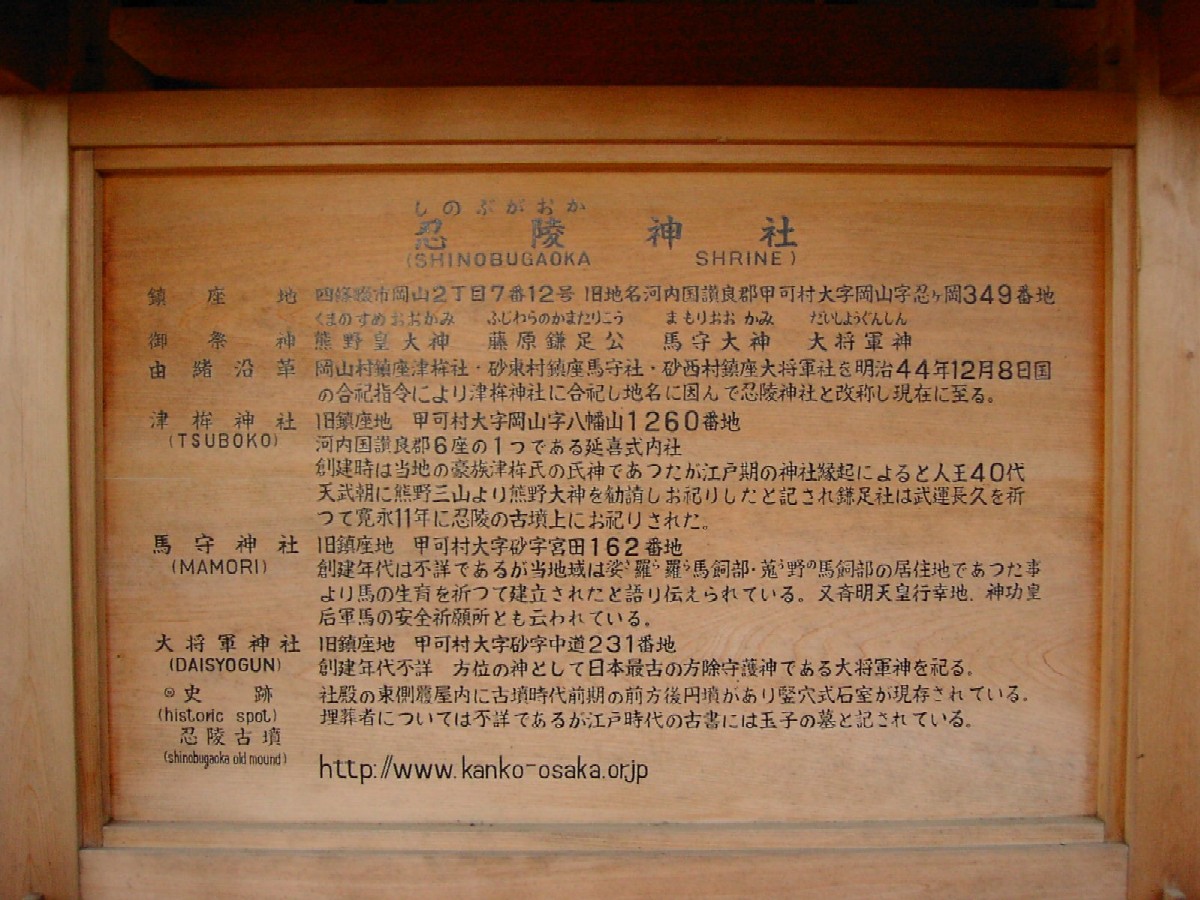 しのぶがおか
忍陵神社
(SHINOBUGAOKA SHRINE)
鎮座地 四條畷市岡山2丁目7番12号 旧地名河内国讃良郡甲可村大字岡山字忍ヶ岡349番地
くまのすめおおがみ ふじわらのかまたりこう まもりおおかみ だいしようぐんしん
御祭神 熊野皇大神 藤原鎌足公 馬守大神 大将軍神
由緒沿革 岡山村鎮座津桙社・砂東村鎮座馬守社・砂西村鎮座大将軍社を明治44年12月8日国
の合祀指令により津桙神社に合祀し地名に因んで忍陵神社と改称し現在に至る。
津桙神社 旧鎮座地 甲可村大字岡山字八幡山1260番地
(TSUBOKO) 河内国讃良郡6座の1つである延喜式内社
創建時は当地の豪族津桙氏の氏神であつたが江戸期の神社縁起によると人王40代
天武朝に熊野三山より熊野大神を勧請しお祀りしたと記され鎌足社は武運長久を祈
つて寛永11年に忍陵の古墳上にお祀りされた。
馬守神社 旧鎮座地 甲可村大字砂字宮田162番地
(MAMORI) 創建年代は不詳であるが当地域は娑さ羅ら羅ら馬飼部・菟う野の馬飼部の居住地であつた事
より馬の生育を祈つて建立されたと語り伝えられている。又斉明天皇行幸地、神功皇
后軍馬の安全祈願所とも云われている。
大将軍神社 旧鎮座地 甲可村大字砂字中道231番地
(DAISYOGUN) 創建年代不詳 方位の神として日本最古の方除守護神である大将軍神を祀る。
◎史跡 社殿の東側覆屋内に古墳時代前期の前方後円墳があり竪穴式石室が現存されている。
(historic spot) 埋葬者については不詳であるが江戸時代の古書には玉子の墓と記されている。
忍陵古墳
(shinobugaoka old mound)
http://www.kanko-osaka.or.jp